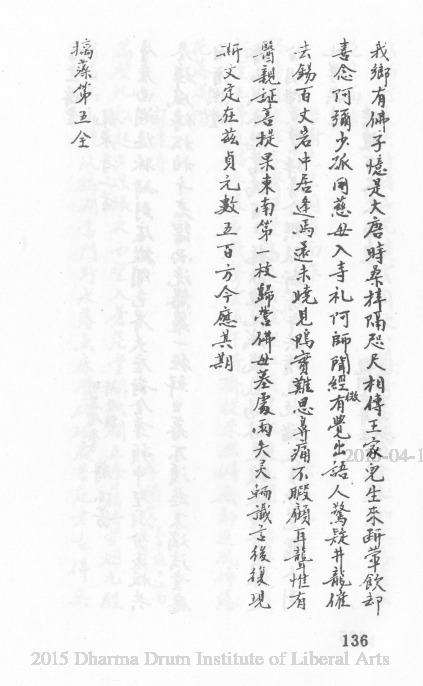 我鄉有佛子憶是大唐時桑梓隔咫尺相傳王家兒生來斷葷飲却
喜念阿彌少孤同慈母入寺礼阿師聞經有微覺出語人驚疑井龍催
去錫百丈岩中居逢馬還未曉見鴨實難思鼻痛不暇顧耳聾惟有
醫親証菩提果東南第一枝歸營佛母墓處兩失灵輀讖言後復現
斯文定在兹貞元數五百方今應其期
摘藻第五全
136
2015 Dharma Drum Institute of Liberal Arts